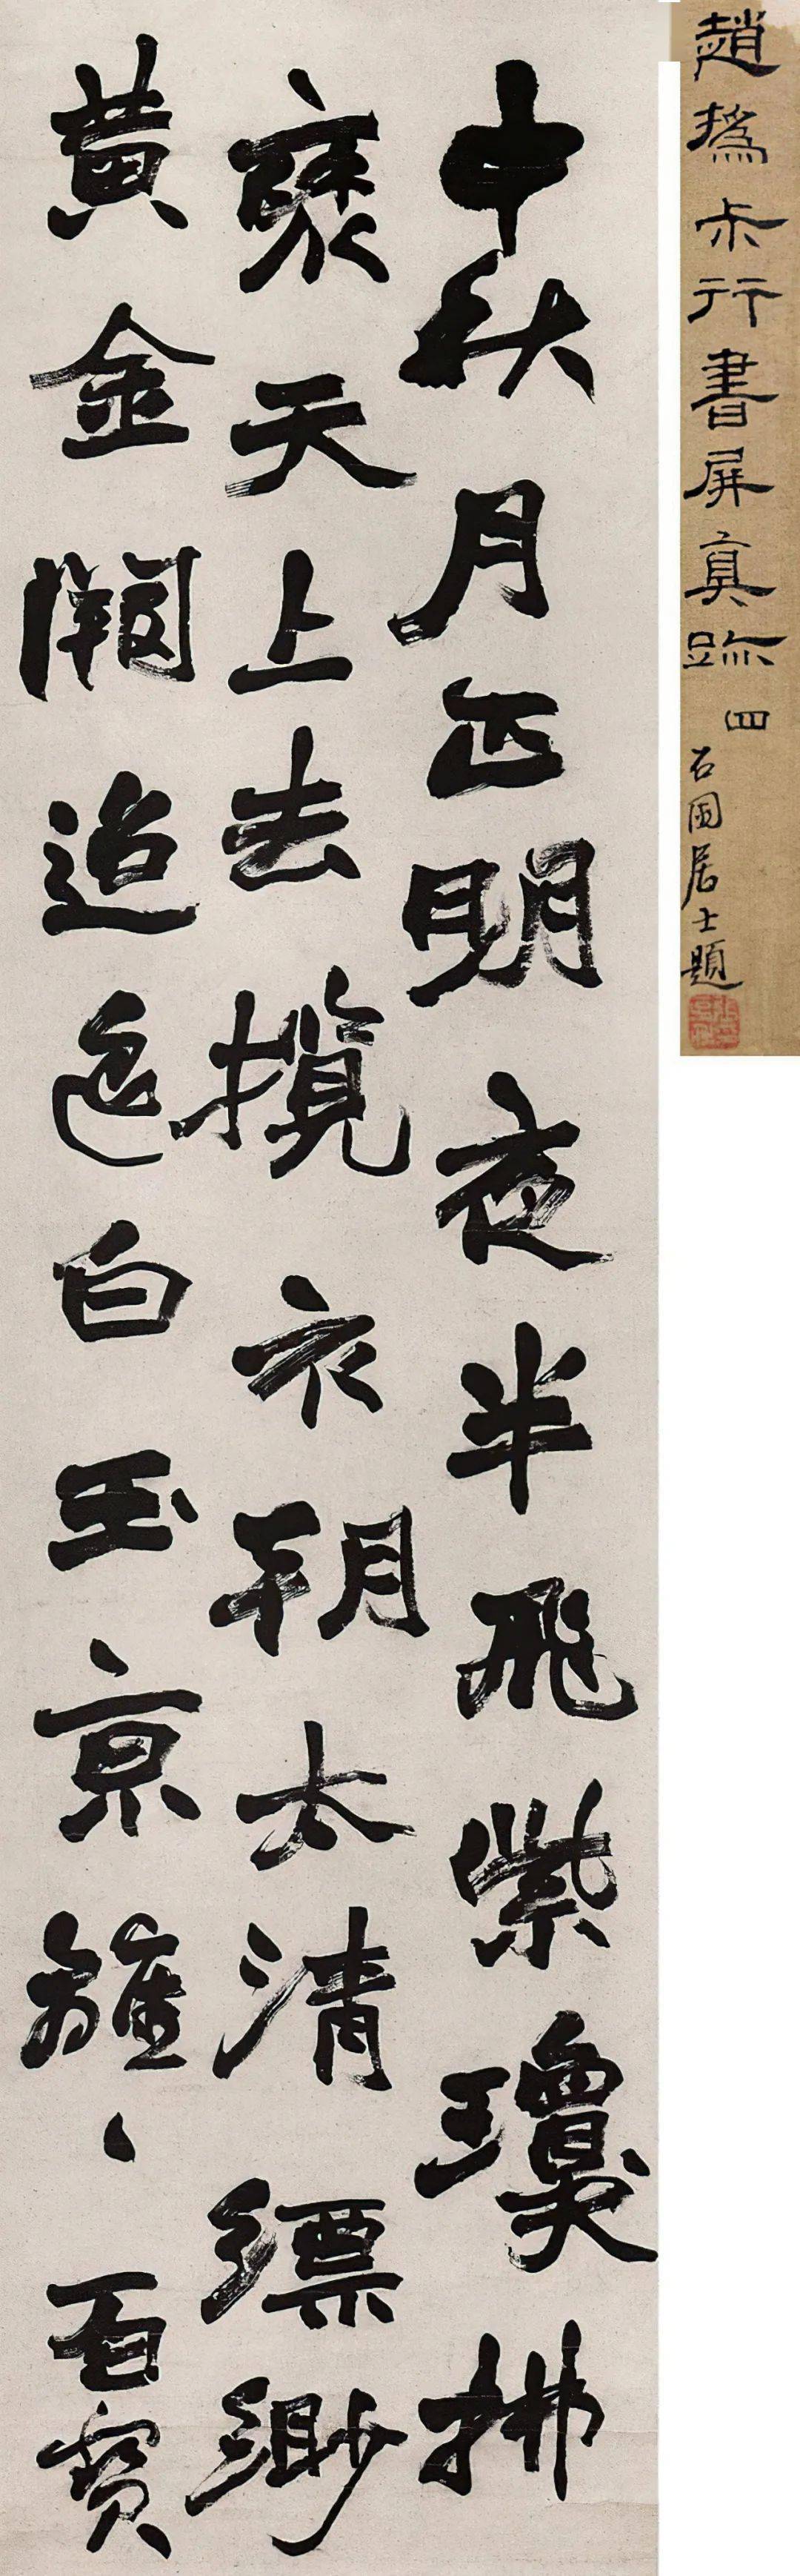 趙撝尗行書屏真跡 四
石園居士題
中秋月正明夜半飛紫瓊拂
褏天上去攬衣朝太清縹緲
黃金闕迢迢白玉京雝〻百寶